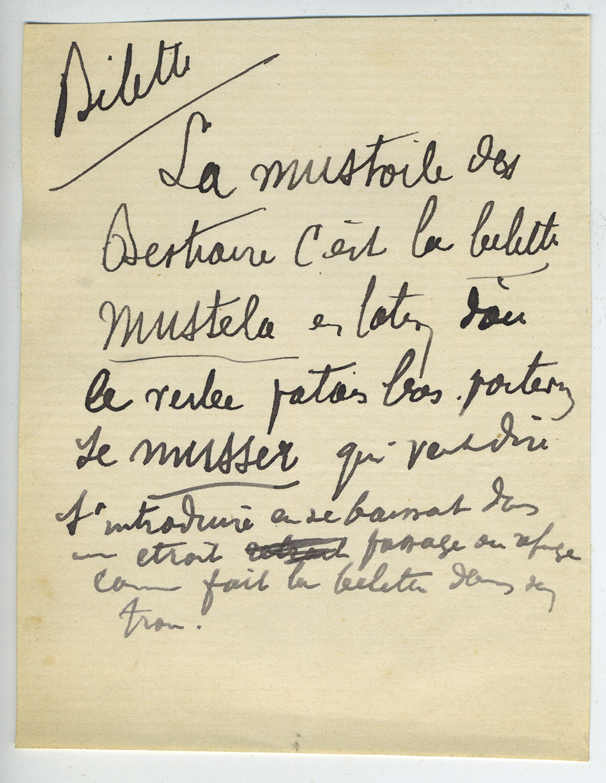 Bilette
La mustoile des
Bestiaire c'est la belette
Mustela en latin d'où
le verbe patois bas-poitevin
se musser qui veut dire
s'introduire en se baissant dans
un étroit passage ou refuge
comme fait la belette dans son
trou.